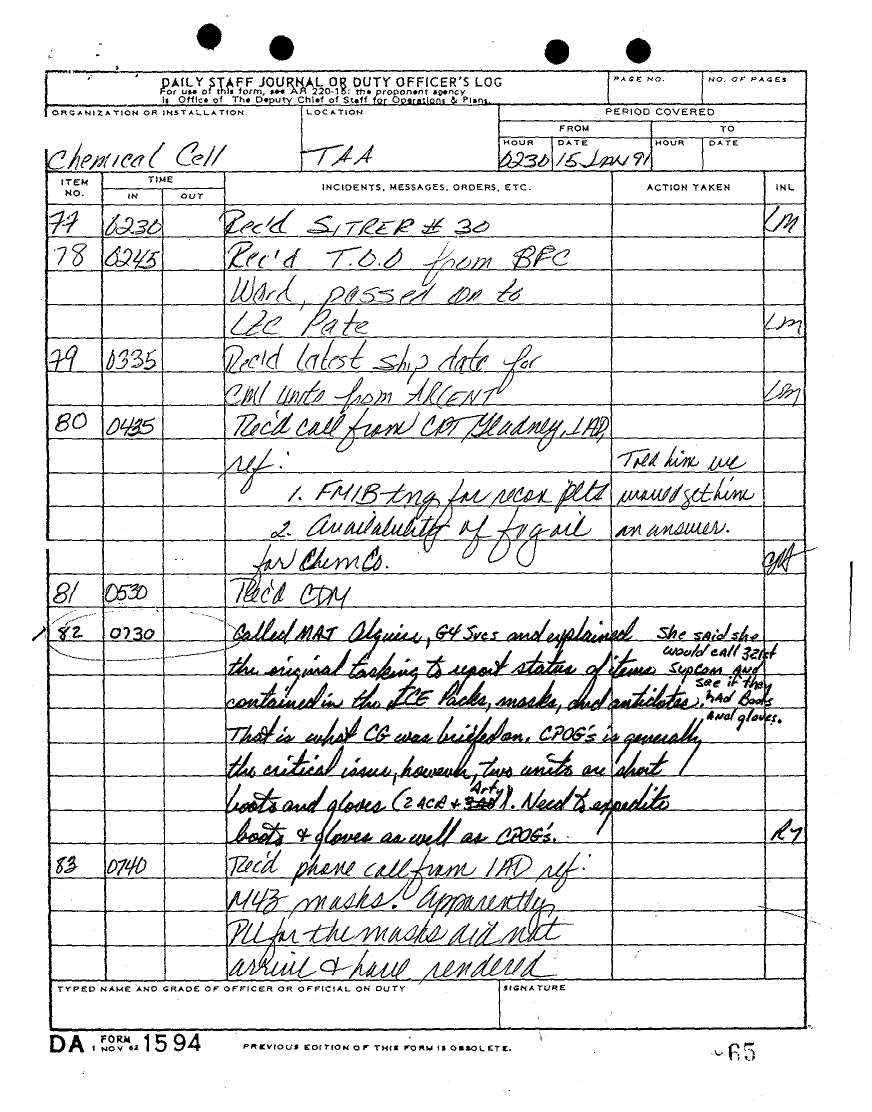 DAILY STAFF JOURNAL OR DUTY OFFICER'S LOG
For use of this form, see AR 220-15: the proponent agency
is Office of The Deputy Chief of Staff for Operations & Plans.
PAGE NO.
NO. OF PAGES
ORGANIZATION OR INSTALLATION
Chemical Cell
LOCATION
TAA
PERIOD COVERED
FROM
TO
HOUR
DATE
HOUR
DATE
0230 15 JAN 91
ITEM NO.
TIME
IN
OUT
INCIDENTS, MESSAGES, ORDERS, ETC.
ACTION TAKEN
INL
77 0230 Rec'd SITREP # 30 LM
78 0245 Rec'd T.O.O from BFC
Word, passed on to
LTC Pate LM
79 0335 Rec'd latest ship date for
Cml units from ARCENT LM
80 0435 Rec'd call from CPT Gladney, 1AD,
ref: Told him we
1. FM1B tng for recon plts would get him
2. Availability of fog oil an answer.
for Chem Co.
81 0530 Rec'd CDM
82 0730 Called MAJ Alguire, G4 Svcs and explained She said she
would call 321st
the original tasking to report status of items SUPCOM AND
see if they
contained in the ICE Packs, masks, and antidotes. had Boots
and gloves.
That is what CG was briefed on. CPOG's is generally
the critical issue, however, two units are short
boots and gloves (2 ACR + Arty). Need to expedite
boots & gloves as well as CPOG's.
83 0740 Rec'd phone call from 1AD ref:
M43 masks. Apparently
PLL for the masks did not
arrive & have rendered
TYPED NAME AND GRADE OF OFFICER OR OFFICIAL ON DUTY
SIGNATURE
DA FORM 1 NOV 62 1594
PREVIOUS EDITION OF THIS FORM IS OBSOLETE.
65